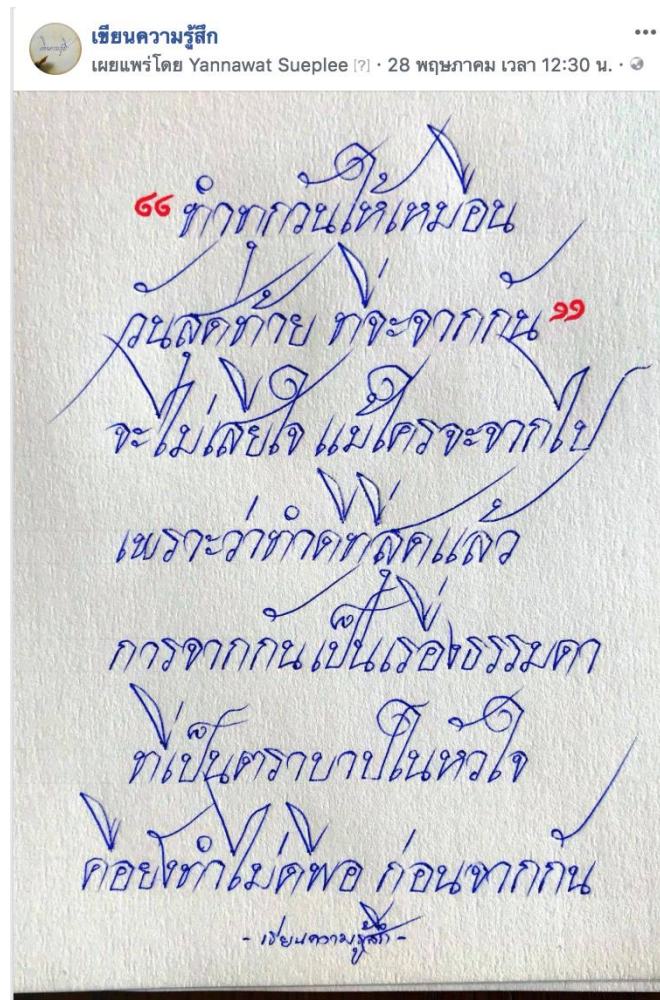 เขียนความรู้สึก
เผยแพร่โดย Yannawat Sueplee [?] · 28 พฤษภาคม เวลา 12:30 น. ·
“ทำทุกวันให้เหมือน
วันสุดท้าย ที่จะจากกัน”
จะไม่เสียใจ แม้ใครจะจากไป
เพราะว่าทำดีที่สุดแล้ว
การจากกันเป็นเรื่องธรรมดา
ที่เป็นตราบาปในหัวใจ
คือยังทำไม่ดีพอ ก่อนจากกัน
- เขียนความรู้สึก -